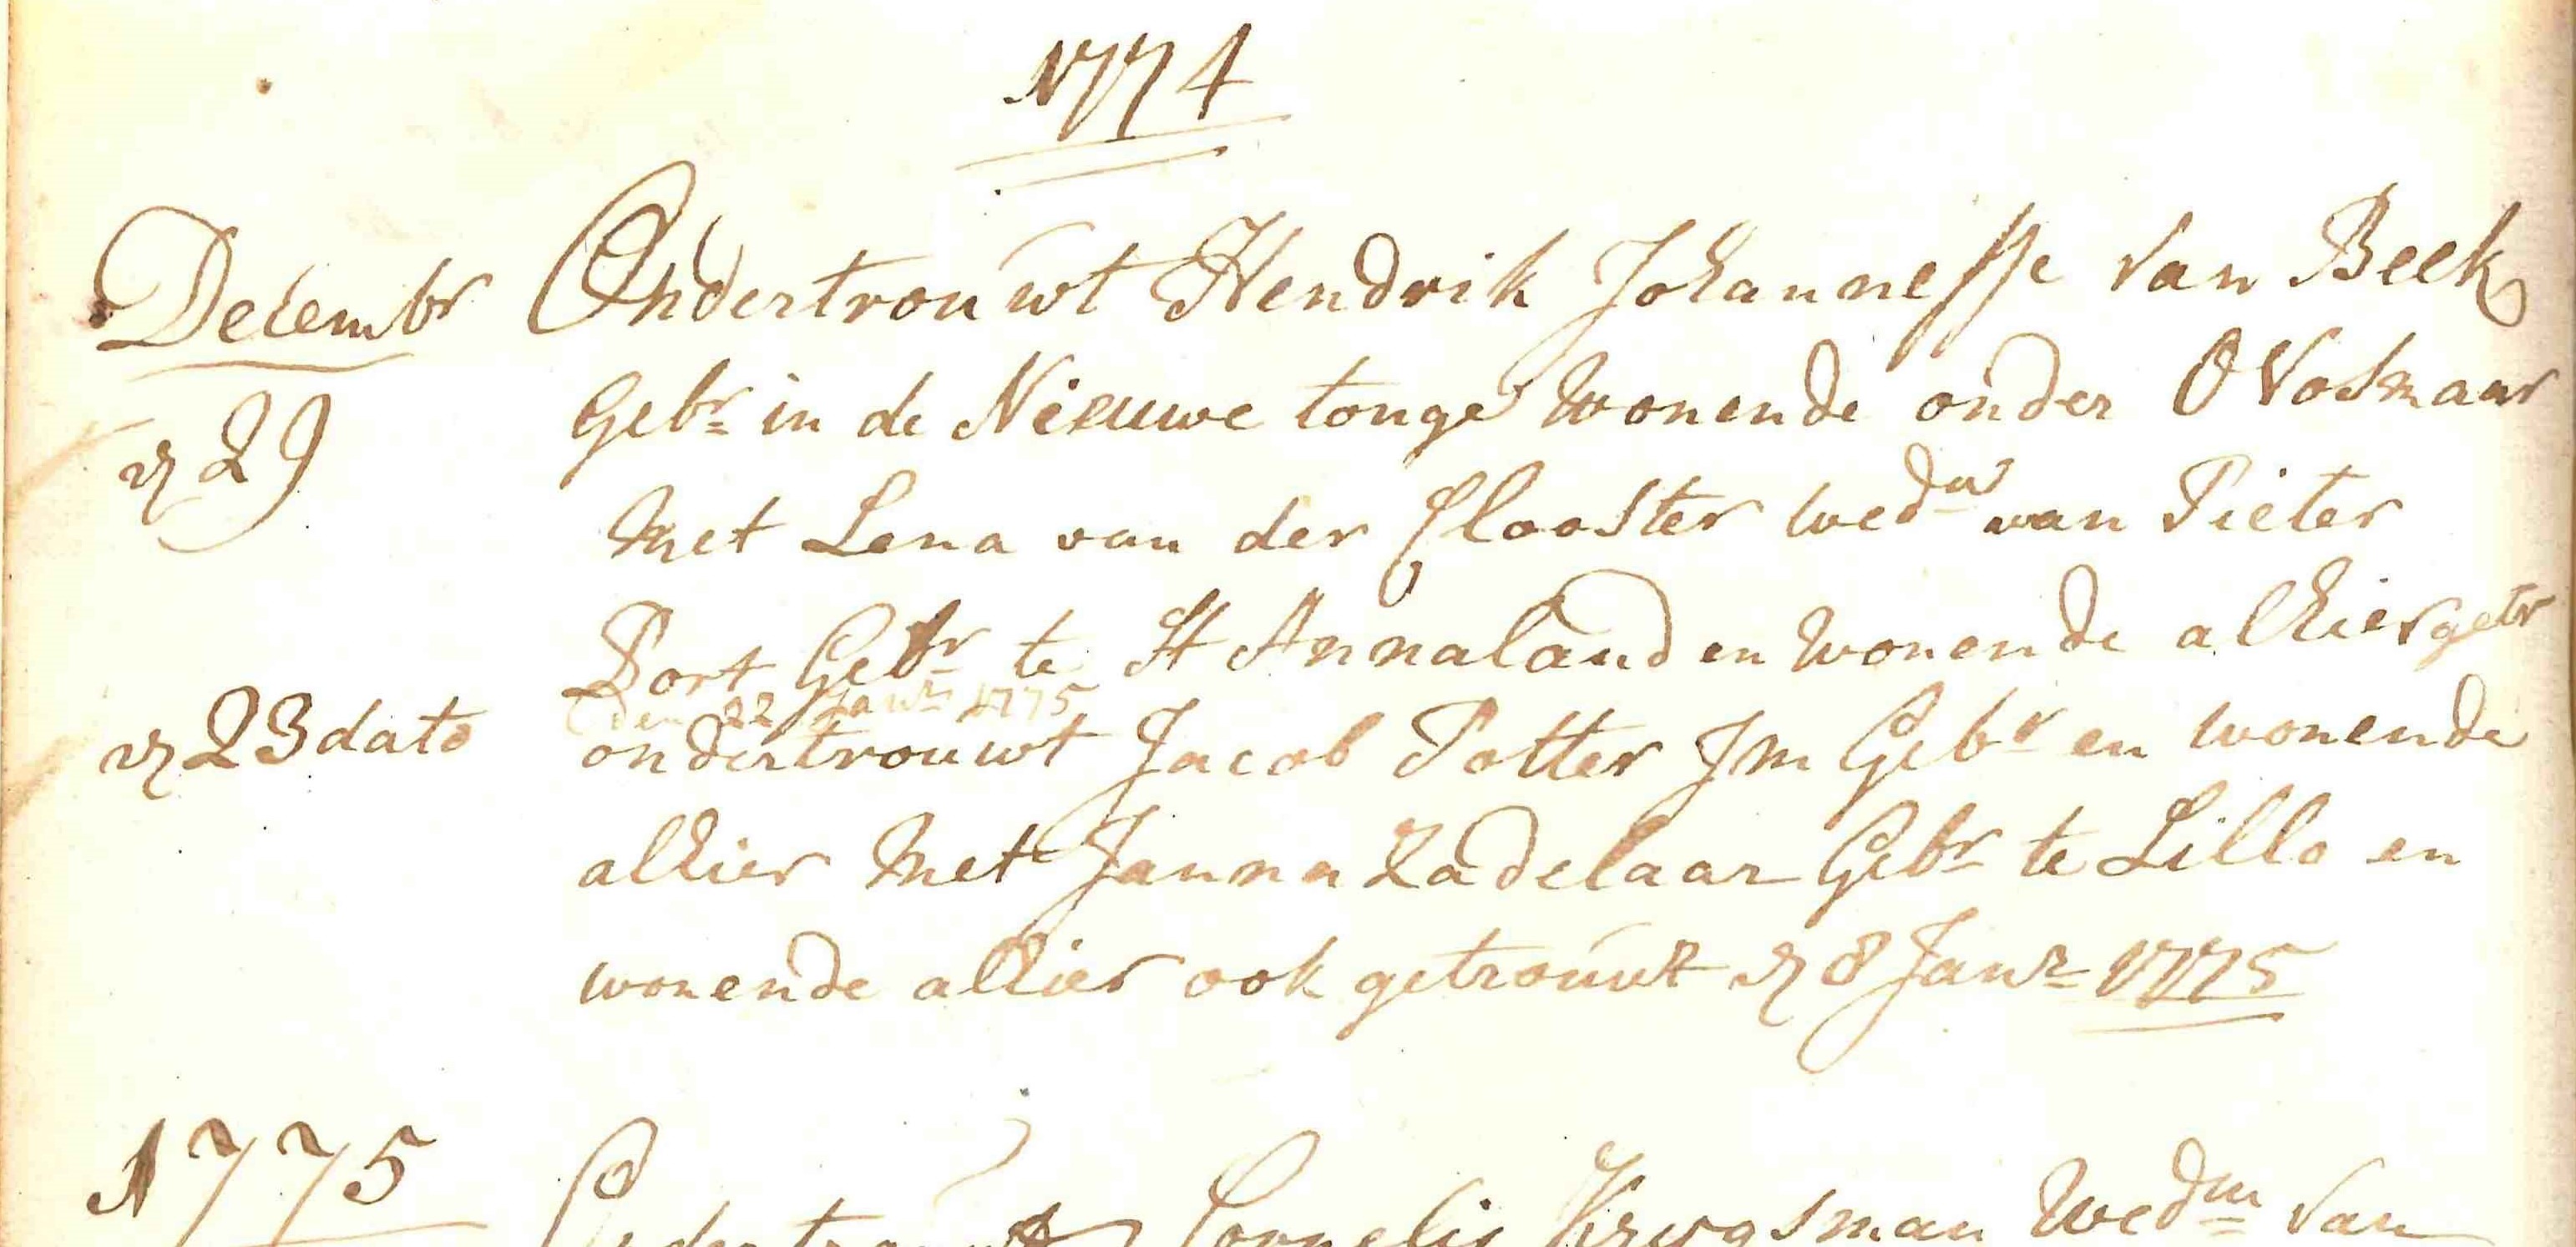 1774
Decembr Ondertrouwt Hendrik Johannesse van Beek
Gebr in de Nieuwe tonge wonende onder O Vosmaar
29
met Lena van der Clooster wedw van Pieter
Port Gebr te St Annaland en wonende alhier getr
den 22 Janr 1775
23 dato ondertrouwt Jacob Potter Jm Gebr en wonende
alhier met Janna Zadelaar Gebr te Lillo en
wonende alhier ook getrouwt 8 Janr 1775
1775 Ondertrouwt Cornelis Krijgsman Wedm van